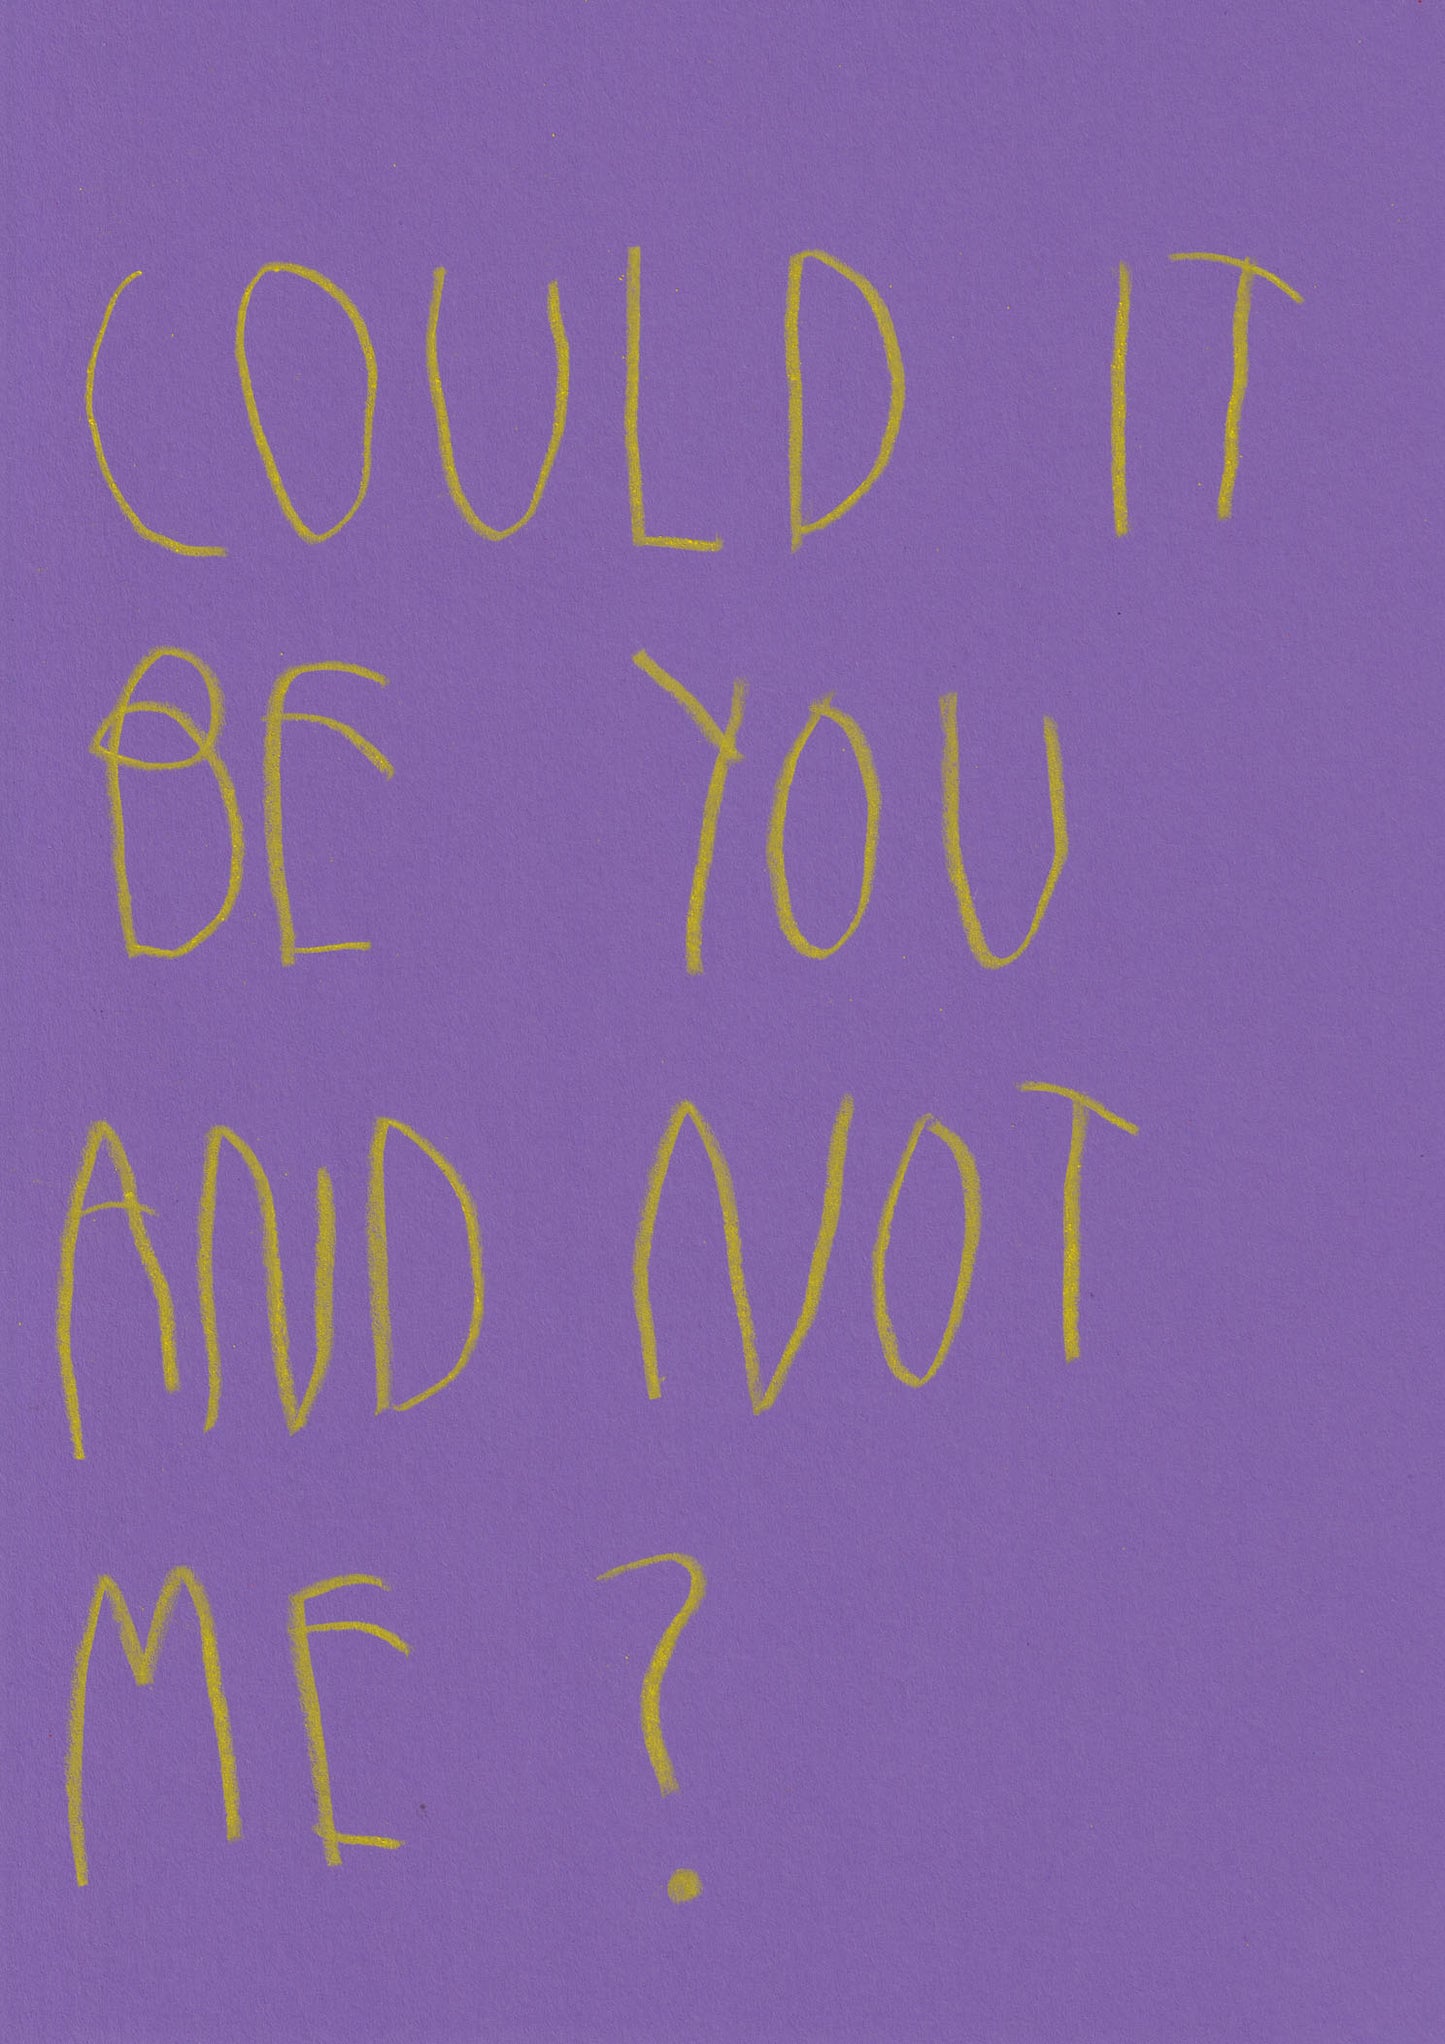 COULD IT
BE YOU
AND NOT
ME ?